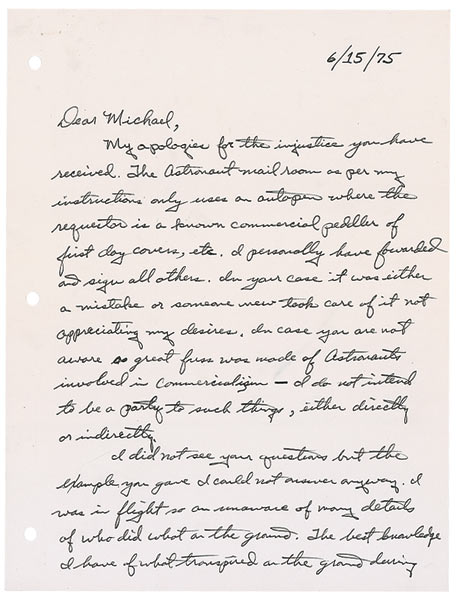 6/15/75
Dear Michael,
My apologies for the injustice you have
received. The Astronaut mail room as per my
instructions only uses an autopen where the
requestor is a known commercial peddler of
first day covers, etc. I personally have fowarded
and sign all others. In your case it was either
a mistake or someone new took care of it not
appreciating my desires. In case you are not
aware so great fuss was made of Astronauts
involved in commercialism — I do not intend
to be a party to such things, either directly
or indirectly.
I did not see your questions but the
example you gave I could not answer anyway. I
was in flight so am unaware of many details
of who did what on the ground. The best knowledge
I have of what transpired on the ground during